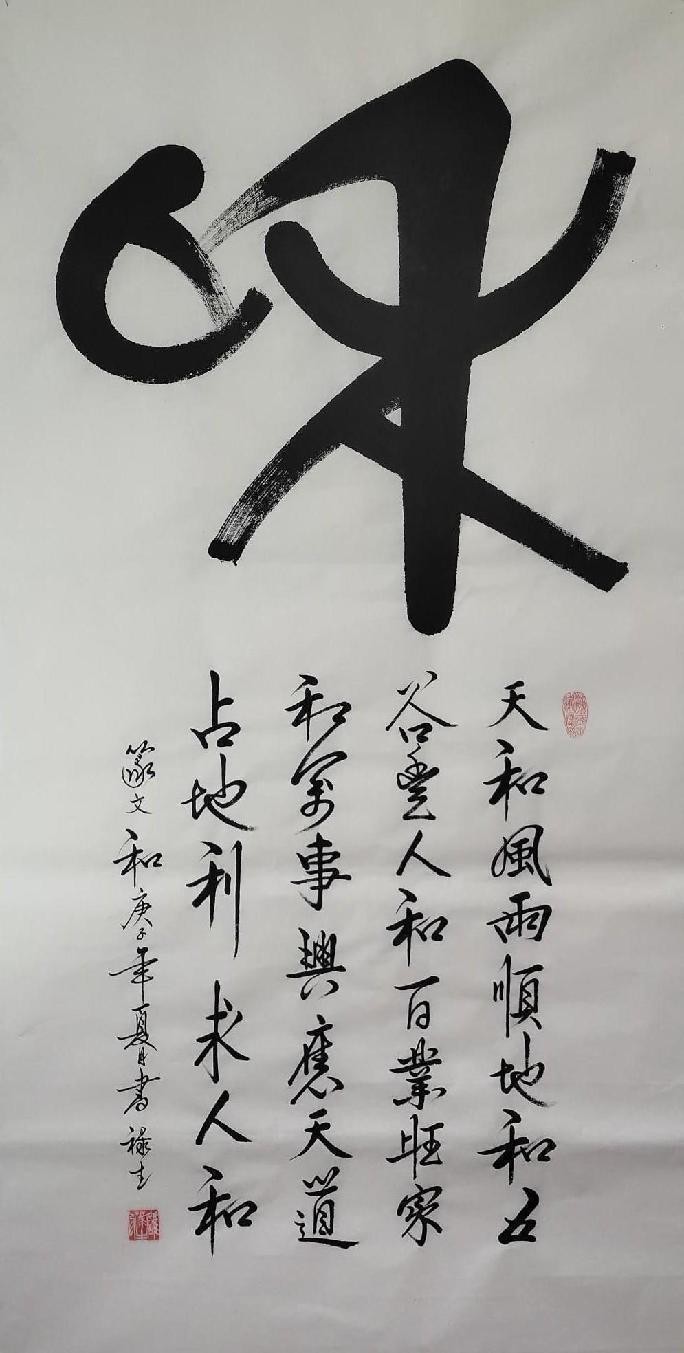 和
天和風雨順地和五
谷豐人和百業旺家
和萬事興應天道
占地利求人和
篆文和庚子年夏日書祿生